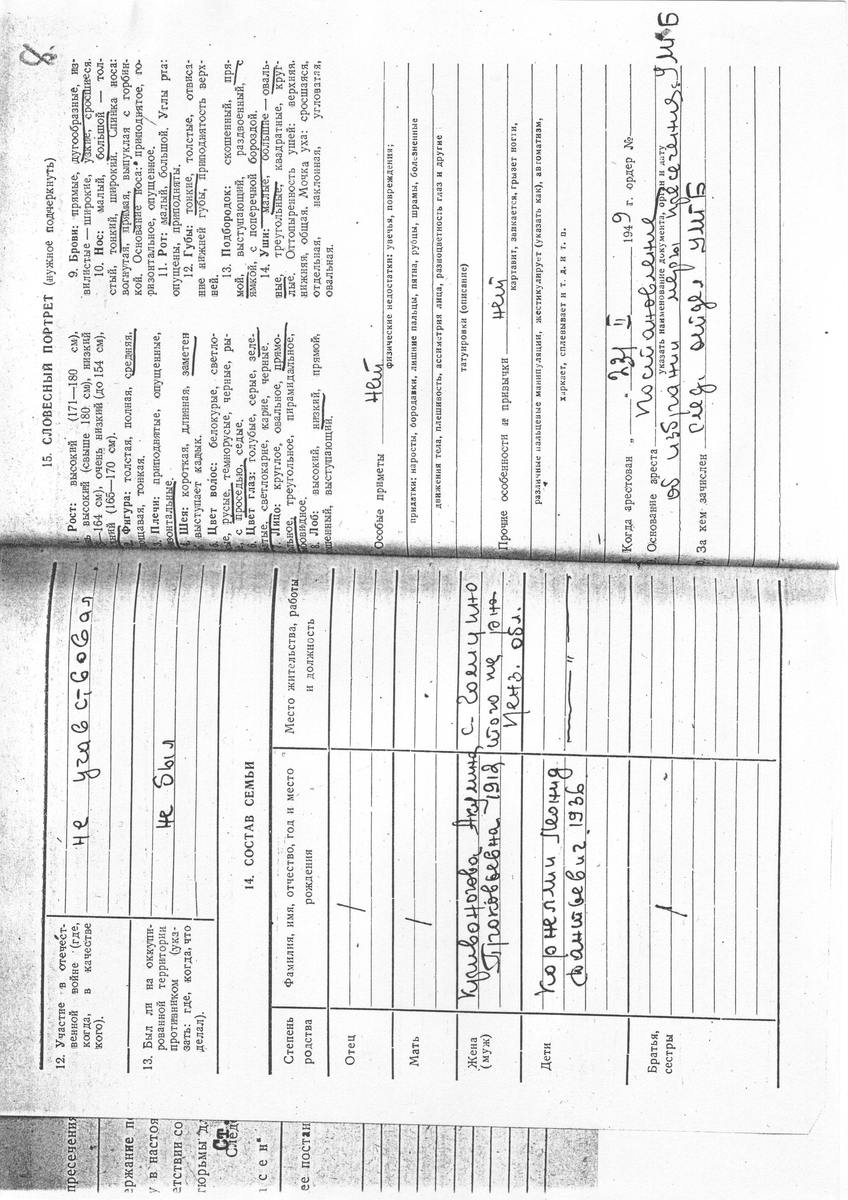 12. Участие в отечест-
венной войне (где,
когда, в качестве
кого).
не участвовал
13. Был ли на оккупи-
рованной территории
противником (ука-
зать: где, когда, что
делал).
не был
14. СОСТАВ СЕМЬИ
Степень
родства
Фамилия, имя, отчество, год и место
рождения
Место жительства, работы
и должность
Отец
/
Мать
/
Жена
(муж)
Кривоногова Акулина
Прокофьевна 1912
того же р-на
Пенз. обл.
Дети
Корнелли Леонид
1936
— " —
Братья,
сестры
/
8.
15. СЛОВЕСНЫЙ ПОРТРЕТ (нужное подчеркнуть)
Рост: высокий (171—180 см),
высокий (свыше 180 см), низкий
—164 см), очень низкий (до 154 см),
ний (165—170 см).
Фигура: толстая, полная, средняя,
щавая, тонкая.
Плечи: приподнятые, опущенные,
зонтальные.
Шея: короткая, длинная, заметен
выступает кадык.
Цвет волос: белокурые, светло-
ые, русые, темнорусые, черные, ры-
с проседью, седые.
Цвет глаз: голубые, серые, зеле-
тые, светлокарие, карие, черные.
Лицо: круглое, овальное, прямо-
ьное, треугольное, пирамидальное,
овидное.
8. Лоб: высокий, низкий, прямой,
шенный, выступающий.
9. Брови: прямые, дугообразные, из-
вилистые — широкие, узкие, сросшиеся.
10. Нос: малый, большой — тол-
стый, тонкий, широкий. Спинка носа:
вогнутая, прямая, выпуклая с горбин-
кой. Основание носа: приподнятое, го-
ризонтальное, опущенное.
11. Рот: малый, большой. Углы рта:
опущены, приподняты.
12. Губы: тонкие, толстые, отвиса-
ние нижней губы, приподнятость верх-
ней.
13. Подбородок: скошенный, пря-
мой, выступающий, раздвоенный, с
ямкой, с поперечной бороздой.
14. Уши: малые, большие — оваль-
ные, треугольные, квадратные, круг-
лые. Оттопыренность ушей: верхняя,
нижняя, общая. Мочка уха: сросшаяся,
отдельная, наклонная, угловатая,
овальная.
Особые приметы нет
физические недостатки: увечья, повреждения;
придатки: наросты, бородавки, лишние пальцы, пятна, рубцы, шрамы, болезненные
движения тела, плешивость, ассиметрия лица, разноцветность глаз и другие
татуировки (описание)
Прочие особенности и привычки нет
картавит, заикается, грызет ногти,
различные пальцевые манипуляции, жестикулирует (указать как), автоматизм,
харкает, сплевывает и т. д. и т. п.
Когда арестован „ 23 " II 1949 г. ордер №
Основание ареста Постановление
указать наименование документа, орган и дату
об избрании меры пресечения, УМГБ
За кем зачислен след. отдел УМГБ
пресечения
ержание п
у в настоя
етствии со
тюрьмы д
Ст.
След
ее постан